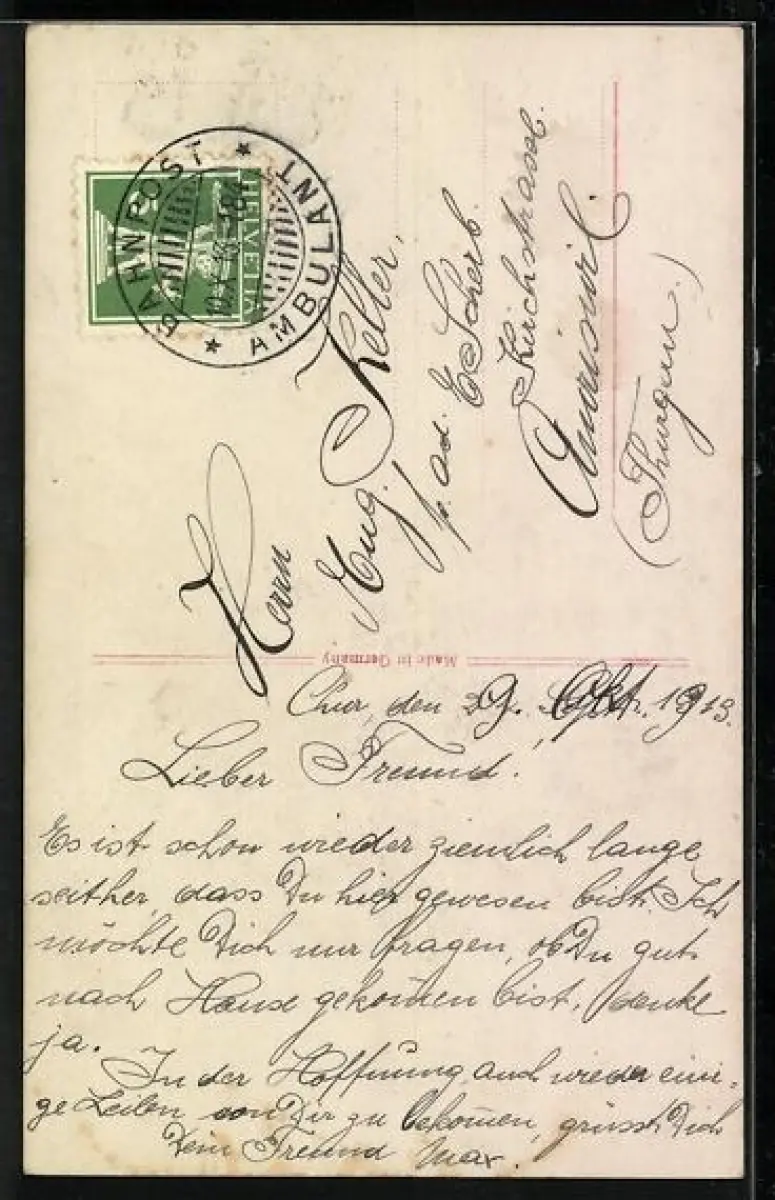 BAHNPOST
AMBULANT
HELVETIA
Herrn
Eug. Keller,
p. Ad. E Scherb.
Kirchstrasse.
Amriswil.
(Thurgau.)
Made in Germany
Chur, den 9. Okt. 1913.
Lieber Freund!
Es ist schon wieder ziemlich lange
seither, dass Du hier gewesen bist. Ich
möchte Dich nur fragen, ob Du gut
nach Hause gekom̅en bist, denke
ja.
In der Hoffnung, auch wieder eini-
ge Zeilen von Dir zu bekom̅en, grüsst Dich
Dein Freund Max.